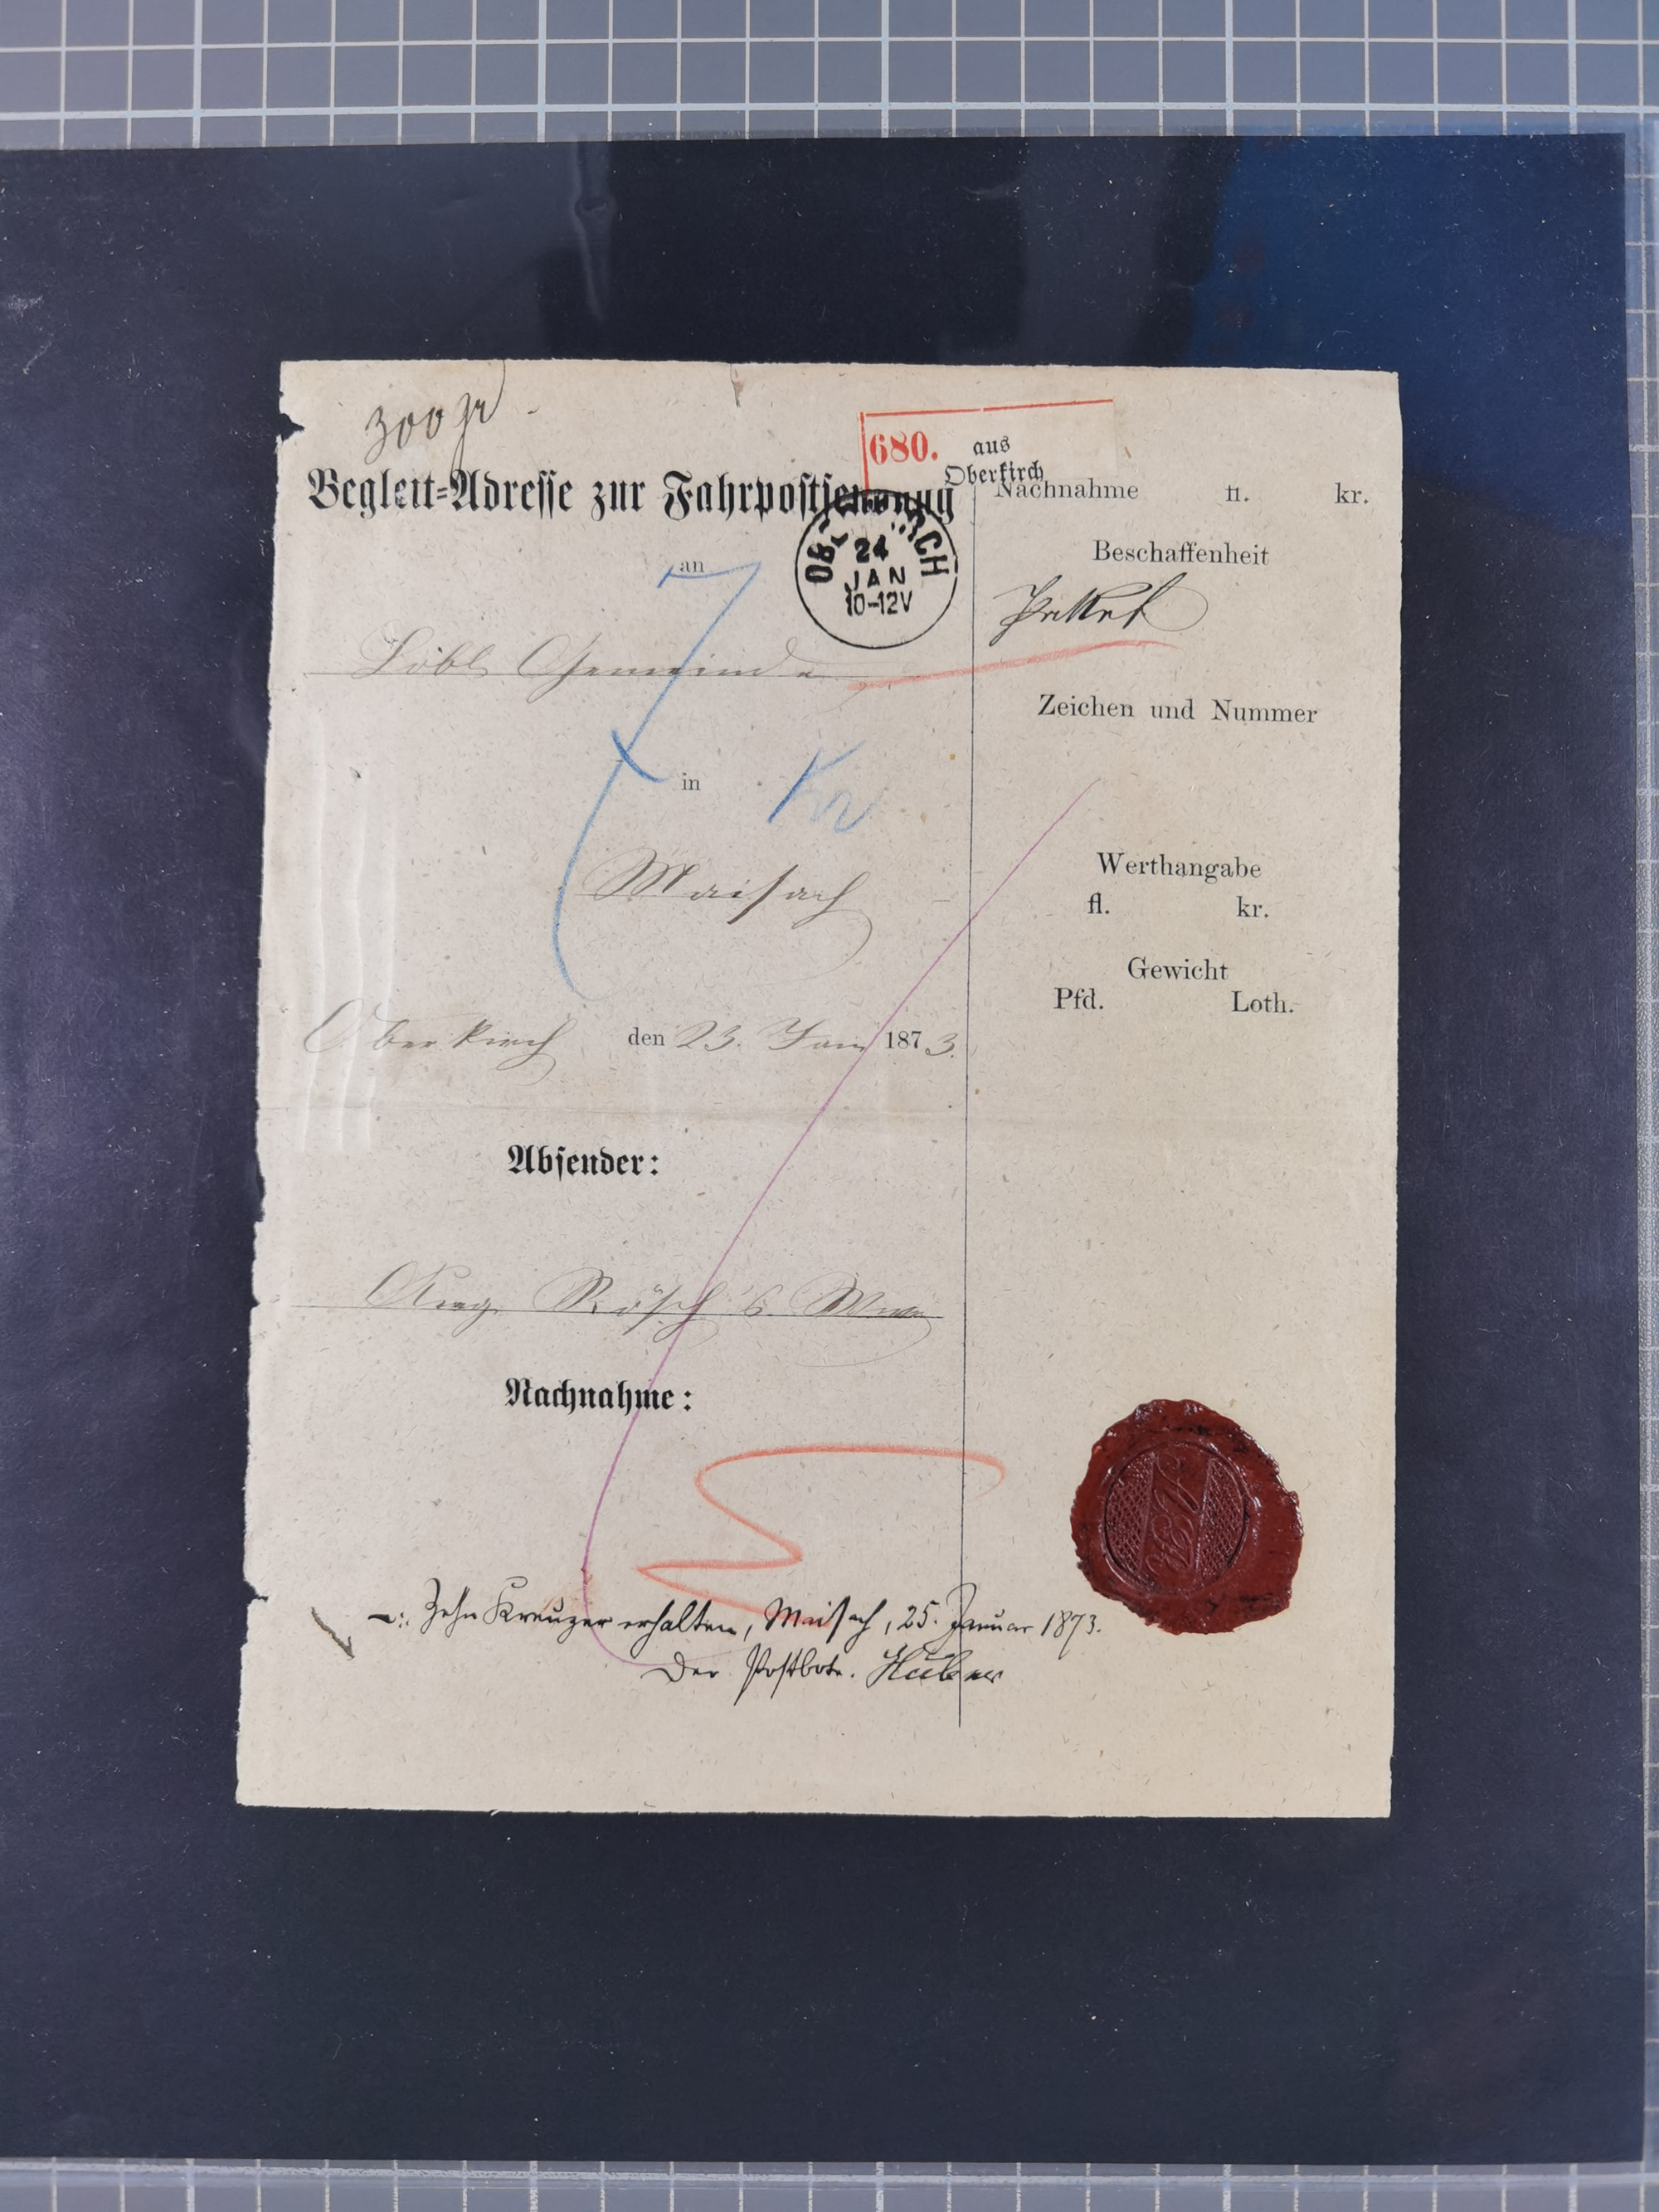 300 gr
680. aus
Oberkirch
Begleit-Adresse zur Fahrpostsendung
Nachnahme fl. kr.
OBERKIRCH
24
JAN
10-12V
Beschaffenheit
Paket
an
Löbl Gemeinde
Zeichen und Nummer
in
7 Kr
Maisach
Werthangabe
fl. kr.
Gewicht
Pfd. Loth.
Oberkirch den 23. Jan 1873.
Absender:
Rösch
Nachnahme:
Zehn Kreuzer erhalten, Maisach, 25. Januar 1873.
Der Postbote. Huber